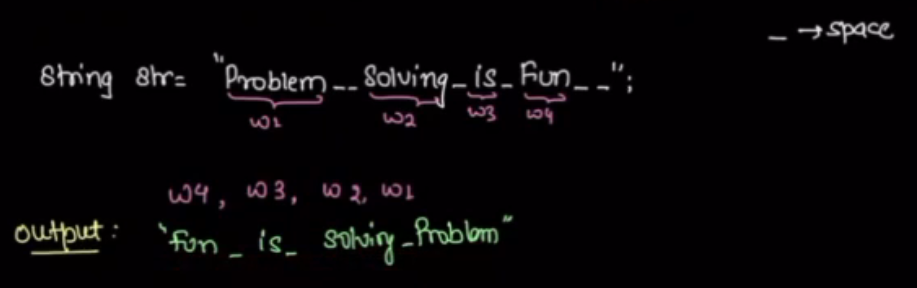 _ → space
String str= "Problem__Solving_is_Fun__";
w1 w2 w3 w4
w4, w3, w2, w1
output: "fun_is_solving_Problem"